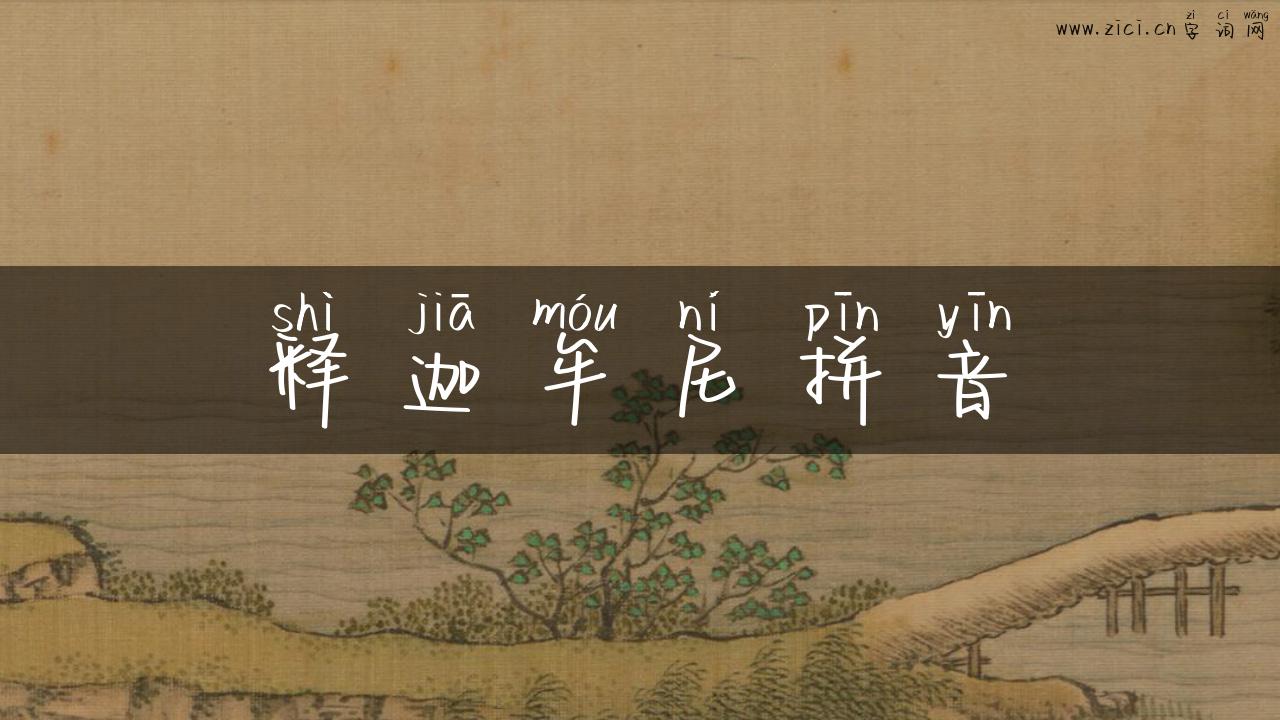 zì cí wǎng
www.zici.cn 字词网
shì jiā móu ní pīn yīn
释迦牟尼拼音